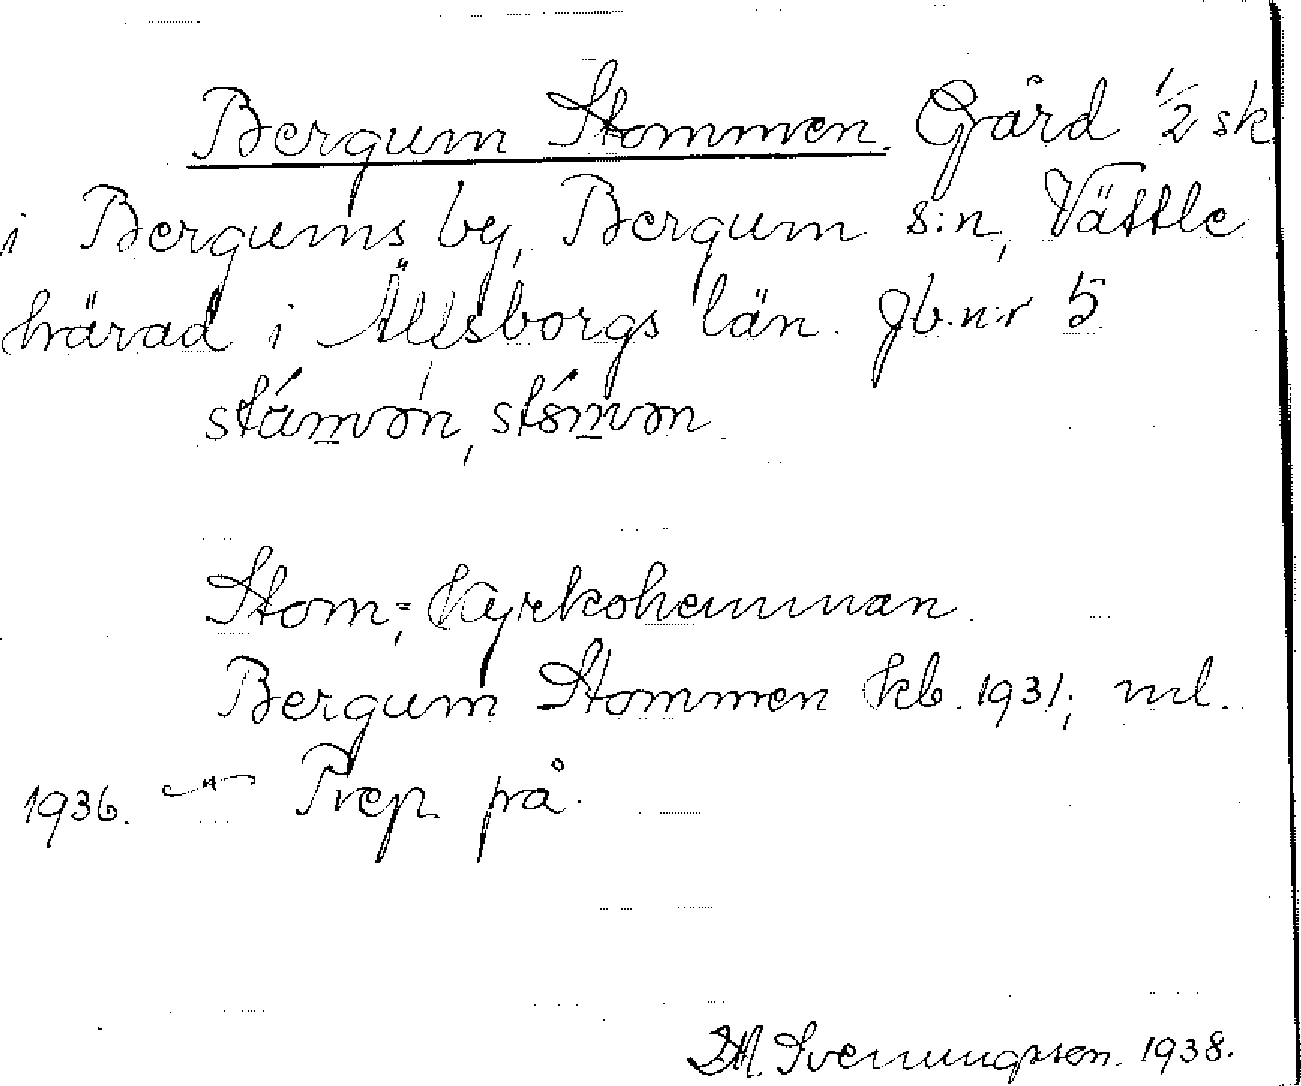 Bergum Stommen. Gård 1/2 sk
i Bergums by, Bergum s:n, Vättle
härad i Älvsborgs län. Jb.n:r 5
Stom-, Kyrkohemman.
Bergum Stommen kb. 1931; ml.
1936. —"— Prep. på.
Svenungsson. 1938.